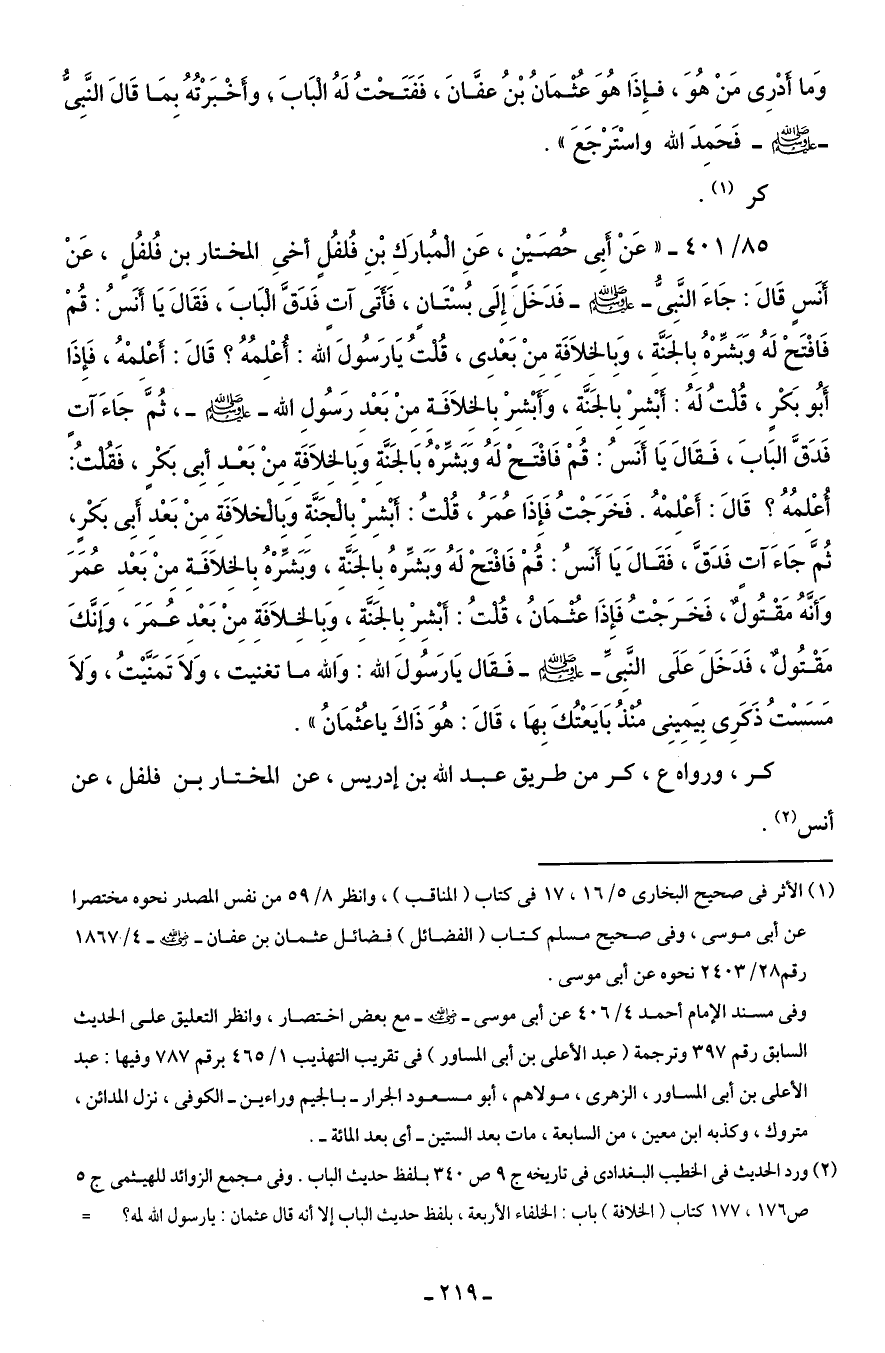 وَما أَدْرِى مَنْ هُوَ ، فَإِذَا هُوَ عُثْمَانُ بْنُ عفَّانَ ، فَفَتَحْت لَهُ الْبَابَ ؛ وأَخْبَرْتُهُ بِمَا قَالَ النَّبِىُّ
- ﷺ - فَحَمِدَ الله واسْتَرْجَعَ » .
كر (١) .
٨٥/ ٤٠١ ـ « عَنْ أَبِى حُصَيْنٍ ، عَنِ الْمُبارَكِ بْنِ فُلفُلٍ أخى المختار بن فُلفُلٍ ، عَنْ
أَنَسٍ قَالَ : جَاءَ النَّبِىُّ - ﷺ - فَدَخَلَ إِلَى بُسْتَانٍ ، فَأَتَى آتٍ فَدَقَّ الْبَابَ ، فَقَالَ يَا أَنَسُ : قُمْ
فَافْتَحْ لَهُ وَبَشِّرْهُ بِالجَنَّةِ ، وَبِالخِلاَفَةِ مِنْ بَعْدِى ، قُلْتُ يَارَسُولَ الله : أُعْلِمُهُ ؟ قَالَ : أَعْلِمْهُ ، فَإِذَا
أَبُو بَكْرٍ ، قُلْتُ لَهُ : أَبْشِرْ بِالجَنَّةِ ، وَأَبْشِرْ بِالخِلاَفَةِ مِنْ بَعْدِ رَسُولِ الله - ﷺ - ، ثُمَّ جَاءَ آتٍ
فَدَقَّ البَابَ ، فَقَالَ يَا أَنَسُ : قُمْ فَافْتَحْ لَهُ وَبَشِّرْهُ بِالجَنَّةِ وَبِالخِلاَفَةِ مِنْ بَعْدِ أبى بَكْرٍ ، فَقُلْتُ:
أُعْلِمُهُ ؟ قَالَ : أَعْلِمْهُ . فَخَرَجْتُ فَإِذَا عُمَرُ ، قُلْتُ : أَبْشِرْ بِالْجَنَّةِ وَبِالْخلاَفَةِ مِنْ بَعْدِ أَبِى بَكْرٍ،
ثُمَّ جَاءَ آتٍ فَدَقَّ ، فَقَالَ يَا أَنَسُ : قُمْ فَافْتَحْ لَهُ وَبَشِّرهُ بِالجَنَّةِ ، وَبَشِّرْهُ بِالخلاَفَةِ مِنْ بَعْدِ عُمَرَ
وَأَنَّهُ مَقْتُولٌ ، فَخَرَجْتُ فَإِذَا عُثْمَانُ ، قُلْتُ : أَبْشِرْ بِالجَنَّةِ ، وَبِالخِلاَفَةِ مِنْ بَعْدِ عُمَرَ ، وَإِنَّكَ
مَقْتُولٌ ، فَدَخَلَ عَلَى النَّبِىِّ - ﷺ - فَقَال يَارَسُولَ الله : وَالله ما تغنيت ، وَلاَ تَمَنَّيْتُ ، وَلاَ
مَسَسْتُ ذَكَرِى بِيَمِينِى مُنْذُ بَايَعْتُكَ بِهَا ، قَالَ : هُوَ ذَاكَ ياعُثْمَانُ » .
كر ، ورواه ع ، كر من طريق عبد الله بن إدريس ، عن المختار بن فلفل ، عن
أنس (٢) .
(١) الأثر فى صحيح البخارى ٥/ ١٦ ، ١٧ فى كتاب ( المناقب ) ، وانظر ٨/ ٥٩ من نفس المصدر نحوه مختصرا
عن أبى موسى ، وفى صحيح مسلم كتاب ( الفضائل ) فضائل عثمان بن عفان - رضي الله عنه - ٤/ ١٨٦٧
رقم ٢٨/ ٢٤٠٣ نحوه عن أبى موسى .
وفى مسند الإمام أحمد ٤/ ٤٠٦ عن أبى موسى - رضي الله عنه - مع بعض اختصار ، وانظر التعليق على الحديث
السابق رقم ٣٩٧ وترجمة ( عبد الأعلى بن أبى المساور ) فى تقريب التهذيب ١/ ٤٦٥ برقم ٧٨٧ وفيها : عبد
الأعلى بن أبى المساور ، الزهرى ، مولاهم ، أبو مسعود الجرار ـ بالجيم وراءين ـ الكوفى ، نزل المدائن ،
متروك ، وكذبه ابن معين ، من السابعة ، مات بعد الستين ـ أى بعد المائة ـ .
(٢) ورد الحديث فى الخطيب البغدادى فى تاريخه ج ٩ ص ٣٤٠ بلفظ حديث الباب . وفى مجمع الزوائد للهيثمى ج ٥
ص ١٧٦ ، ١٧٧ كتاب ( الخلافة ) باب : الخلفاء الأربعة ، بلفظ حديث الباب إلا أنه قال عثمان : يارسول الله لمه؟ =
- ٢١٩ -